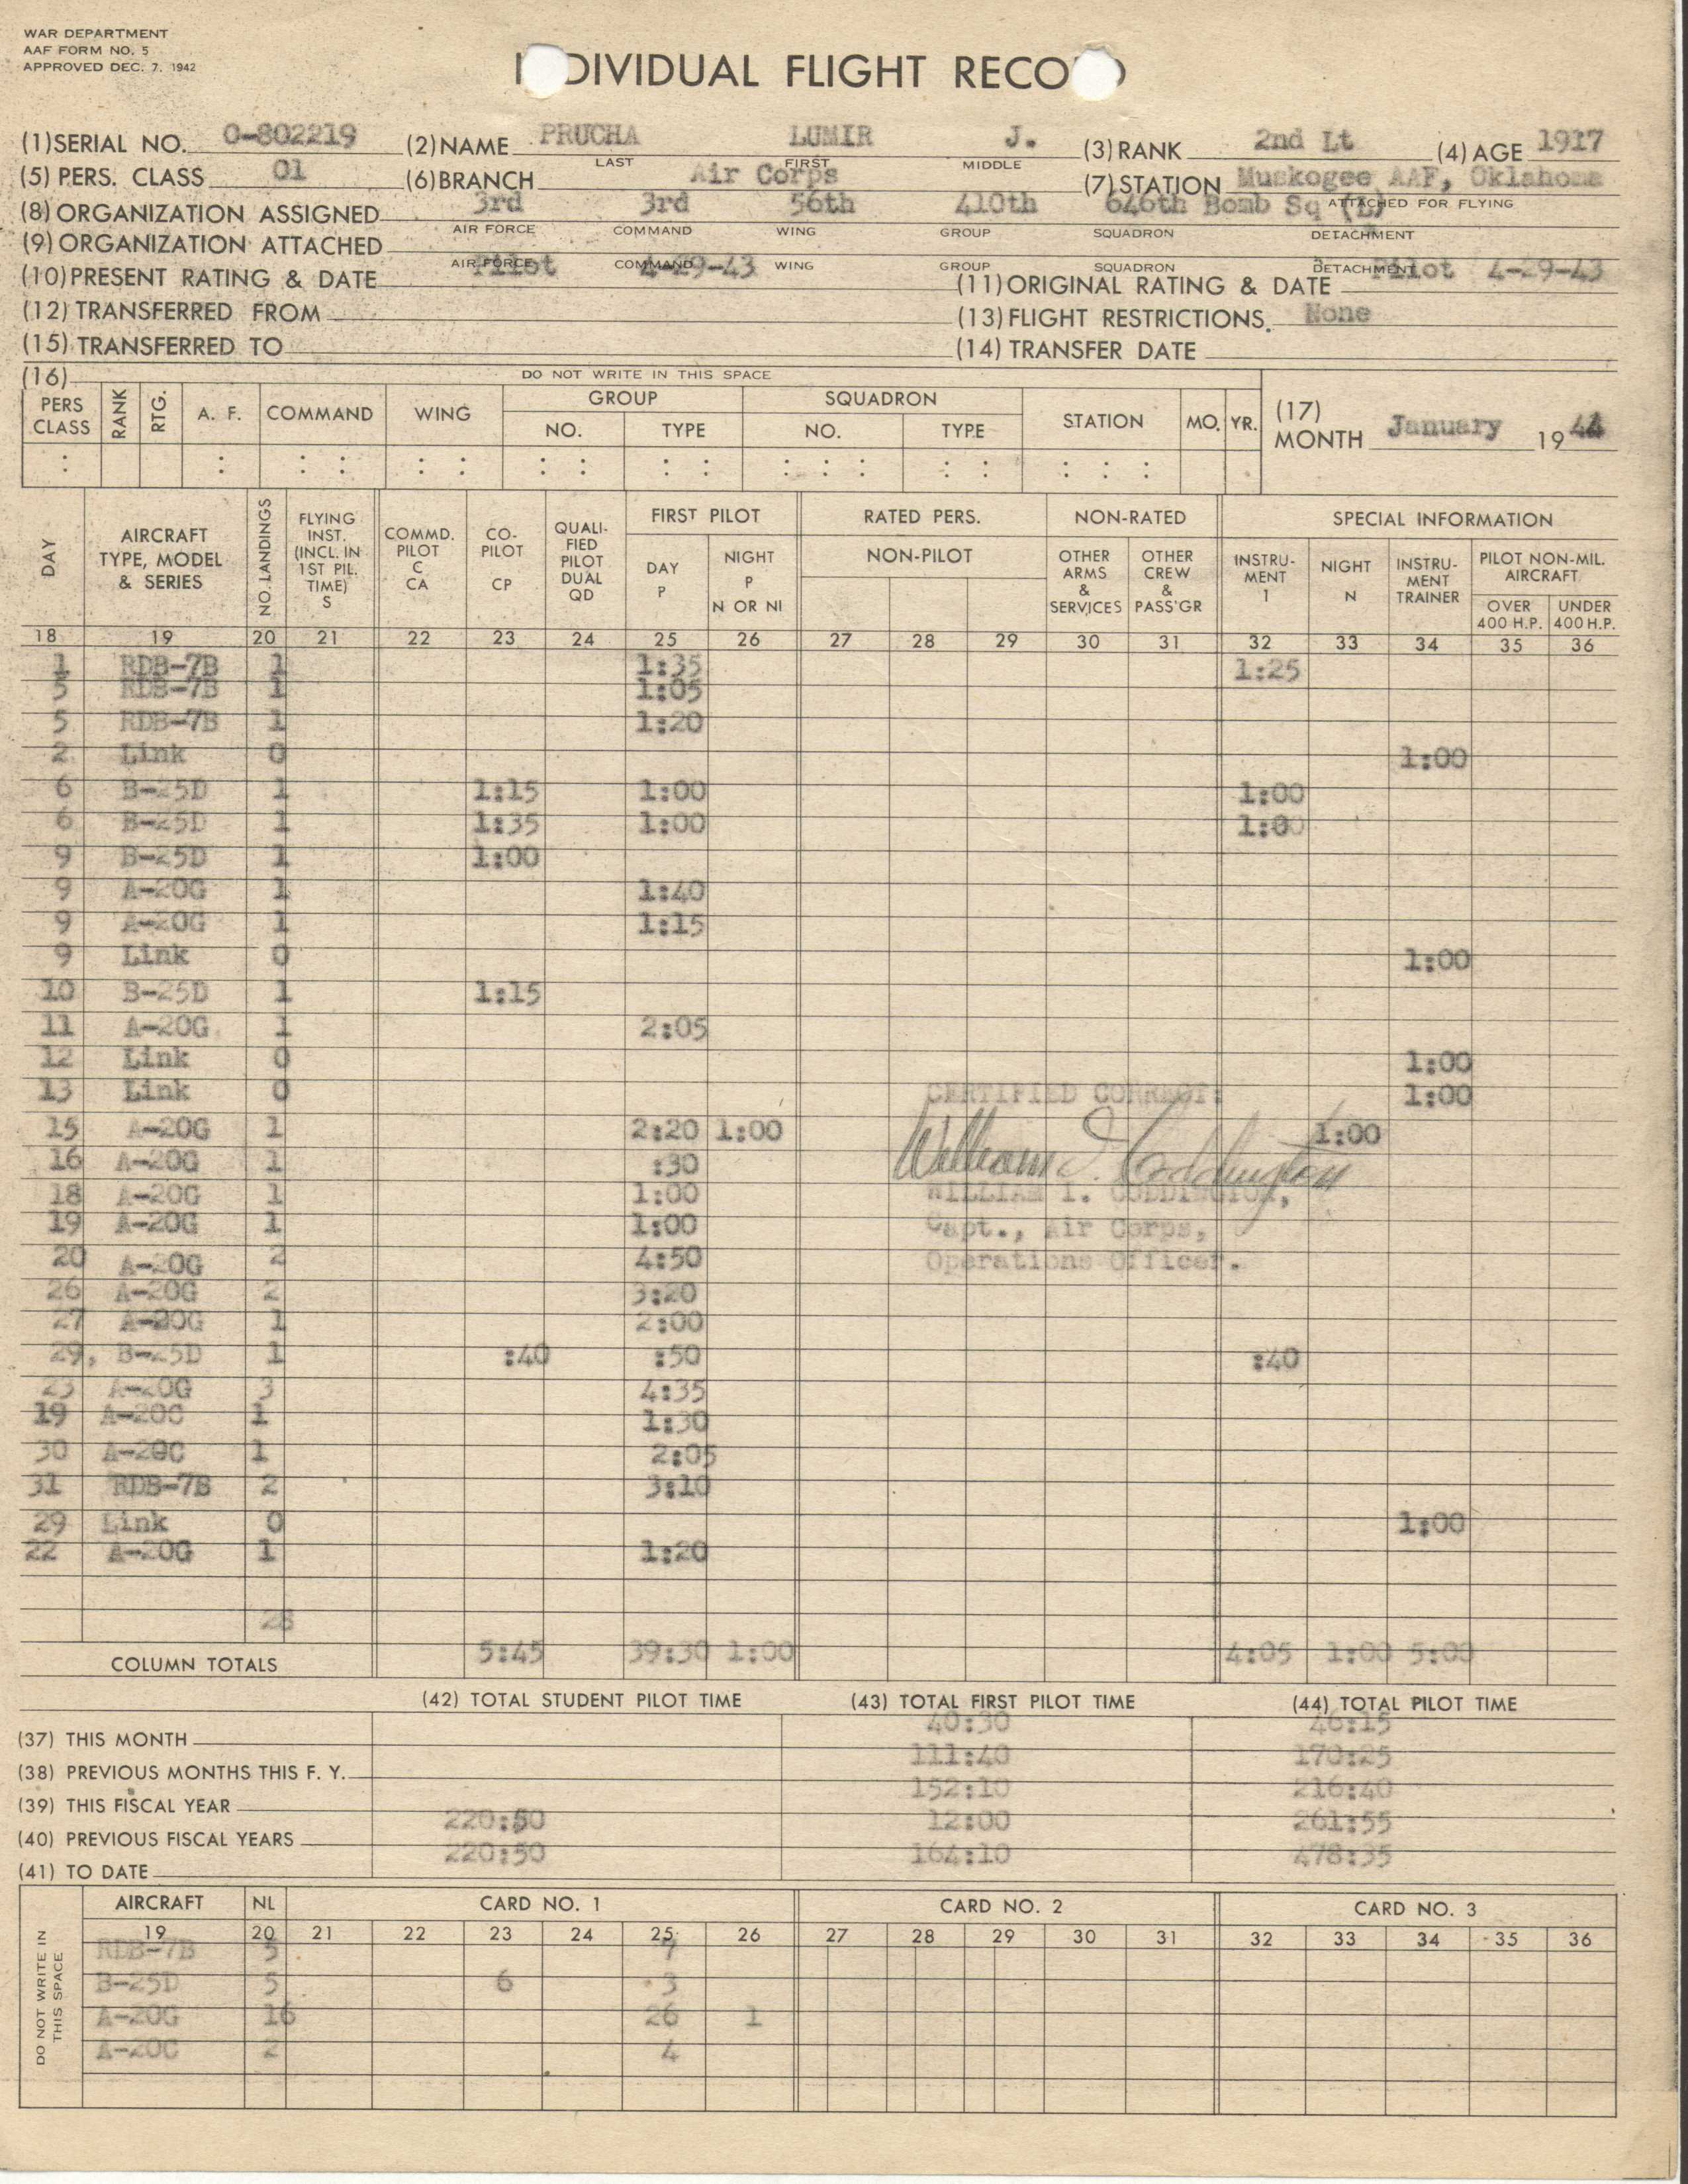 WAR DEPARTMENT
AAF FORM NO. 5
APPROVED DEC. 7, 1942
INDIVIDUAL FLIGHT RECORD
(1) SERIAL NO. 0-802219 (2) NAME PRUCHA LUMIR J. (3) RANK 2nd Lt (4) AGE 1917
LAST FIRST MIDDLE
(5) PERS. CLASS 01 (6) BRANCH Air Corps (7) STATION Muskogee AAF, Oklahoma
ATTACHED FOR FLYING
(8) ORGANIZATION ASSIGNED 3rd 3rd 56th 410th 646th Bomb Sq (L)
AIR FORCE COMMAND WING GROUP SQUADRON DETACHMENT
(9) ORGANIZATION ATTACHED
AIR FORCE COMMAND WING GROUP SQUADRON DETACHMENT
(10) PRESENT RATING & DATE Pilot 4-29-43 (11) ORIGINAL RATING & DATE Pilot 4-29-43
(12) TRANSFERRED FROM (13) FLIGHT RESTRICTIONS. None
(15) TRANSFERRED TO (14) TRANSFER DATE
(16) DO NOT WRITE IN THIS SPACE
PERS CLASS RANK RTG. A. F. COMMAND WING GROUP NO. TYPE SQUADRON NO. TYPE STATION MO. YR. (17) MONTH January 1944
DAY AIRCRAFT TYPE, MODEL & SERIES NO. LANDINGS FLYING INST. (INCL. IN 1ST PIL. TIME) S COMMD. PILOT C CA CO-PILOT CP QUALI-FIED PILOT DUAL QD FIRST PILOT DAY P NIGHT P N OR NI RATED PERS. NON-PILOT NON-RATED OTHER ARMS & SERVICES OTHER CREW & PASS'GR SPECIAL INFORMATION INSTRU-MENT I NIGHT N INSTRU-MENT TRAINER PILOT NON-MIL. AIRCRAFT OVER 400 H.P. UNDER 400 H.P.
18 19 20 21 22 23 24 25 26 27 28 29 30 31 32 33 34 35 36
1 RDB-7B 1 1:35 1:25
5 RDB-7B 1 1:05
5 RDB-7B 1 1:20
2 Link 0 1:00
6 B-25D 1 1:15 1:00 1:00
6 B-25D 1 1:35 1:00 1:00
9 B-25D 1 1:00
9 A-20G 1 1:40
9 A-20G 1 1:15
9 Link 0 1:00
10 B-25D 1 1:15
11 A-20G 1 2:05
12 Link 0 1:00
13 Link 0 CERTIFIED CORRECT: 1:00
15 A-20G 1 2:20 1:00 1:00
William I. Coddington
16 A-20G 1 :30
18 A-20G 1 1:00 WILLIAM I. CODDINGTON,
19 A-20G 1 1:00 Capt., Air Corps,
20 A-20G 2 4:50 Operations Officer.
26 A-20G 2 3:20
27 A-20G 1 2:00
29, B-25D 1 :40 :50 :40
23 A-20G 3 4:35
19 A-20C 1 1:30
30 A-20C 1 2:05
31 RDB-7B 2 3:10
29 Link 0 1:00
22 A-20G 1 1:20
28
COLUMN TOTALS 5:45 39:30 1:00 4:05 1:00 5:00
(42) TOTAL STUDENT PILOT TIME (43) TOTAL FIRST PILOT TIME (44) TOTAL PILOT TIME
(37) THIS MONTH 40:30 46:15
(38) PREVIOUS MONTHS THIS F. Y. 111:40 170:25
(39) THIS FISCAL YEAR 152:10 216:40
(40) PREVIOUS FISCAL YEARS 220:50 12:00 261:55
(41) TO DATE 220:50 164:10 478:35
DO NOT WRITE IN THIS SPACE
AIRCRAFT NL CARD NO. 1 CARD NO. 2 CARD NO. 3
19 20 21 22 23 24 25 26 27 28 29 30 31 32 33 34 35 36
RDB-7B 5 7
B-25D 5 6 3
A-20G 16 26 1
A-20C 2 4